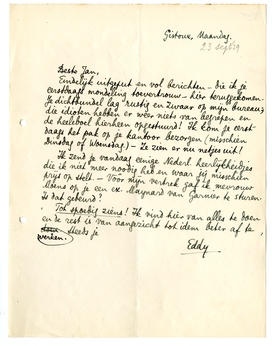 Gistoux, Maandag.
23 sept 29
Beste Jan,
Eindelijk uitgerust en vol berichten – die ik je
eerstdaags mondeling toevertrouw – hier teruggekomen.
Je dichtbundel lag rustig en zwaar op mijn bureau;
die idioten hebben er weer niets van begrepen en
de heelebol hierheen opgestuurd! Ik kom je eerst-
daags het pak op je kantoor bezorgen (misschien
Dinsdag of Woensdag). – Ze zien er nu netjes uit!
Ik zend je vandaag eenige Nederl. heerlijkheidjes
die ik niet meer noodig heb en waar jij misschien
prijs op stelt. – Voor mijn vertrek gaf ik mevrouw
Moens op je een ex. Maynard van Garnier te sturen.
Is dat gebeurd?
Tot spoedig ziens! Ik vind hier van alles te doen
en de rest is van aangezicht tot idem beter af te
werken.
Steeds je
Eddy